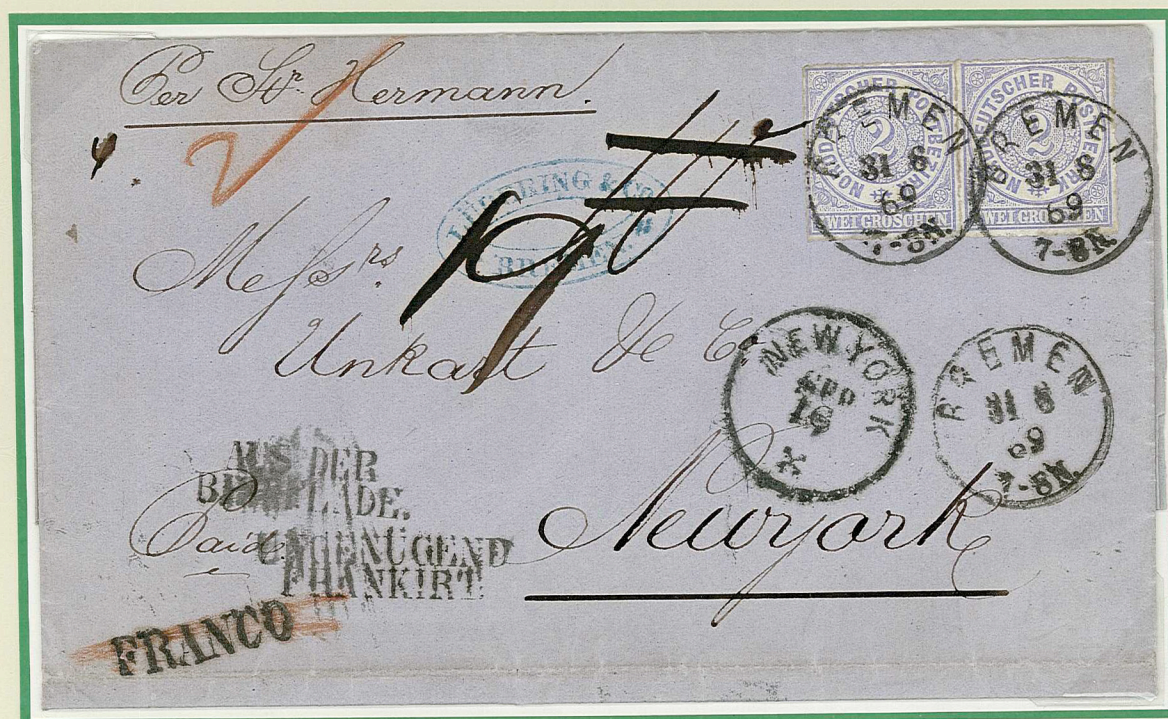 Per Str. Hermann.
NORDDEUTSCHER POSTBEZIRK
2
ZWEI GROSCHEN
NORDDEUTSCHER POSTBEZIRK
2
ZWEI GROSCHEN
BREMEN
31 8
69
7-8N.
BREMEN
31 8
69
7-8N.
& Co
BREMEN.
Messrs
Unkart & Co
NEW YORK
BREMEN
31 8
69
7-8N.
AUS DER
BRIEFLADE.
Paid.
UNGENÜGEND
FRANKIRT.
Newyork
FRANCO